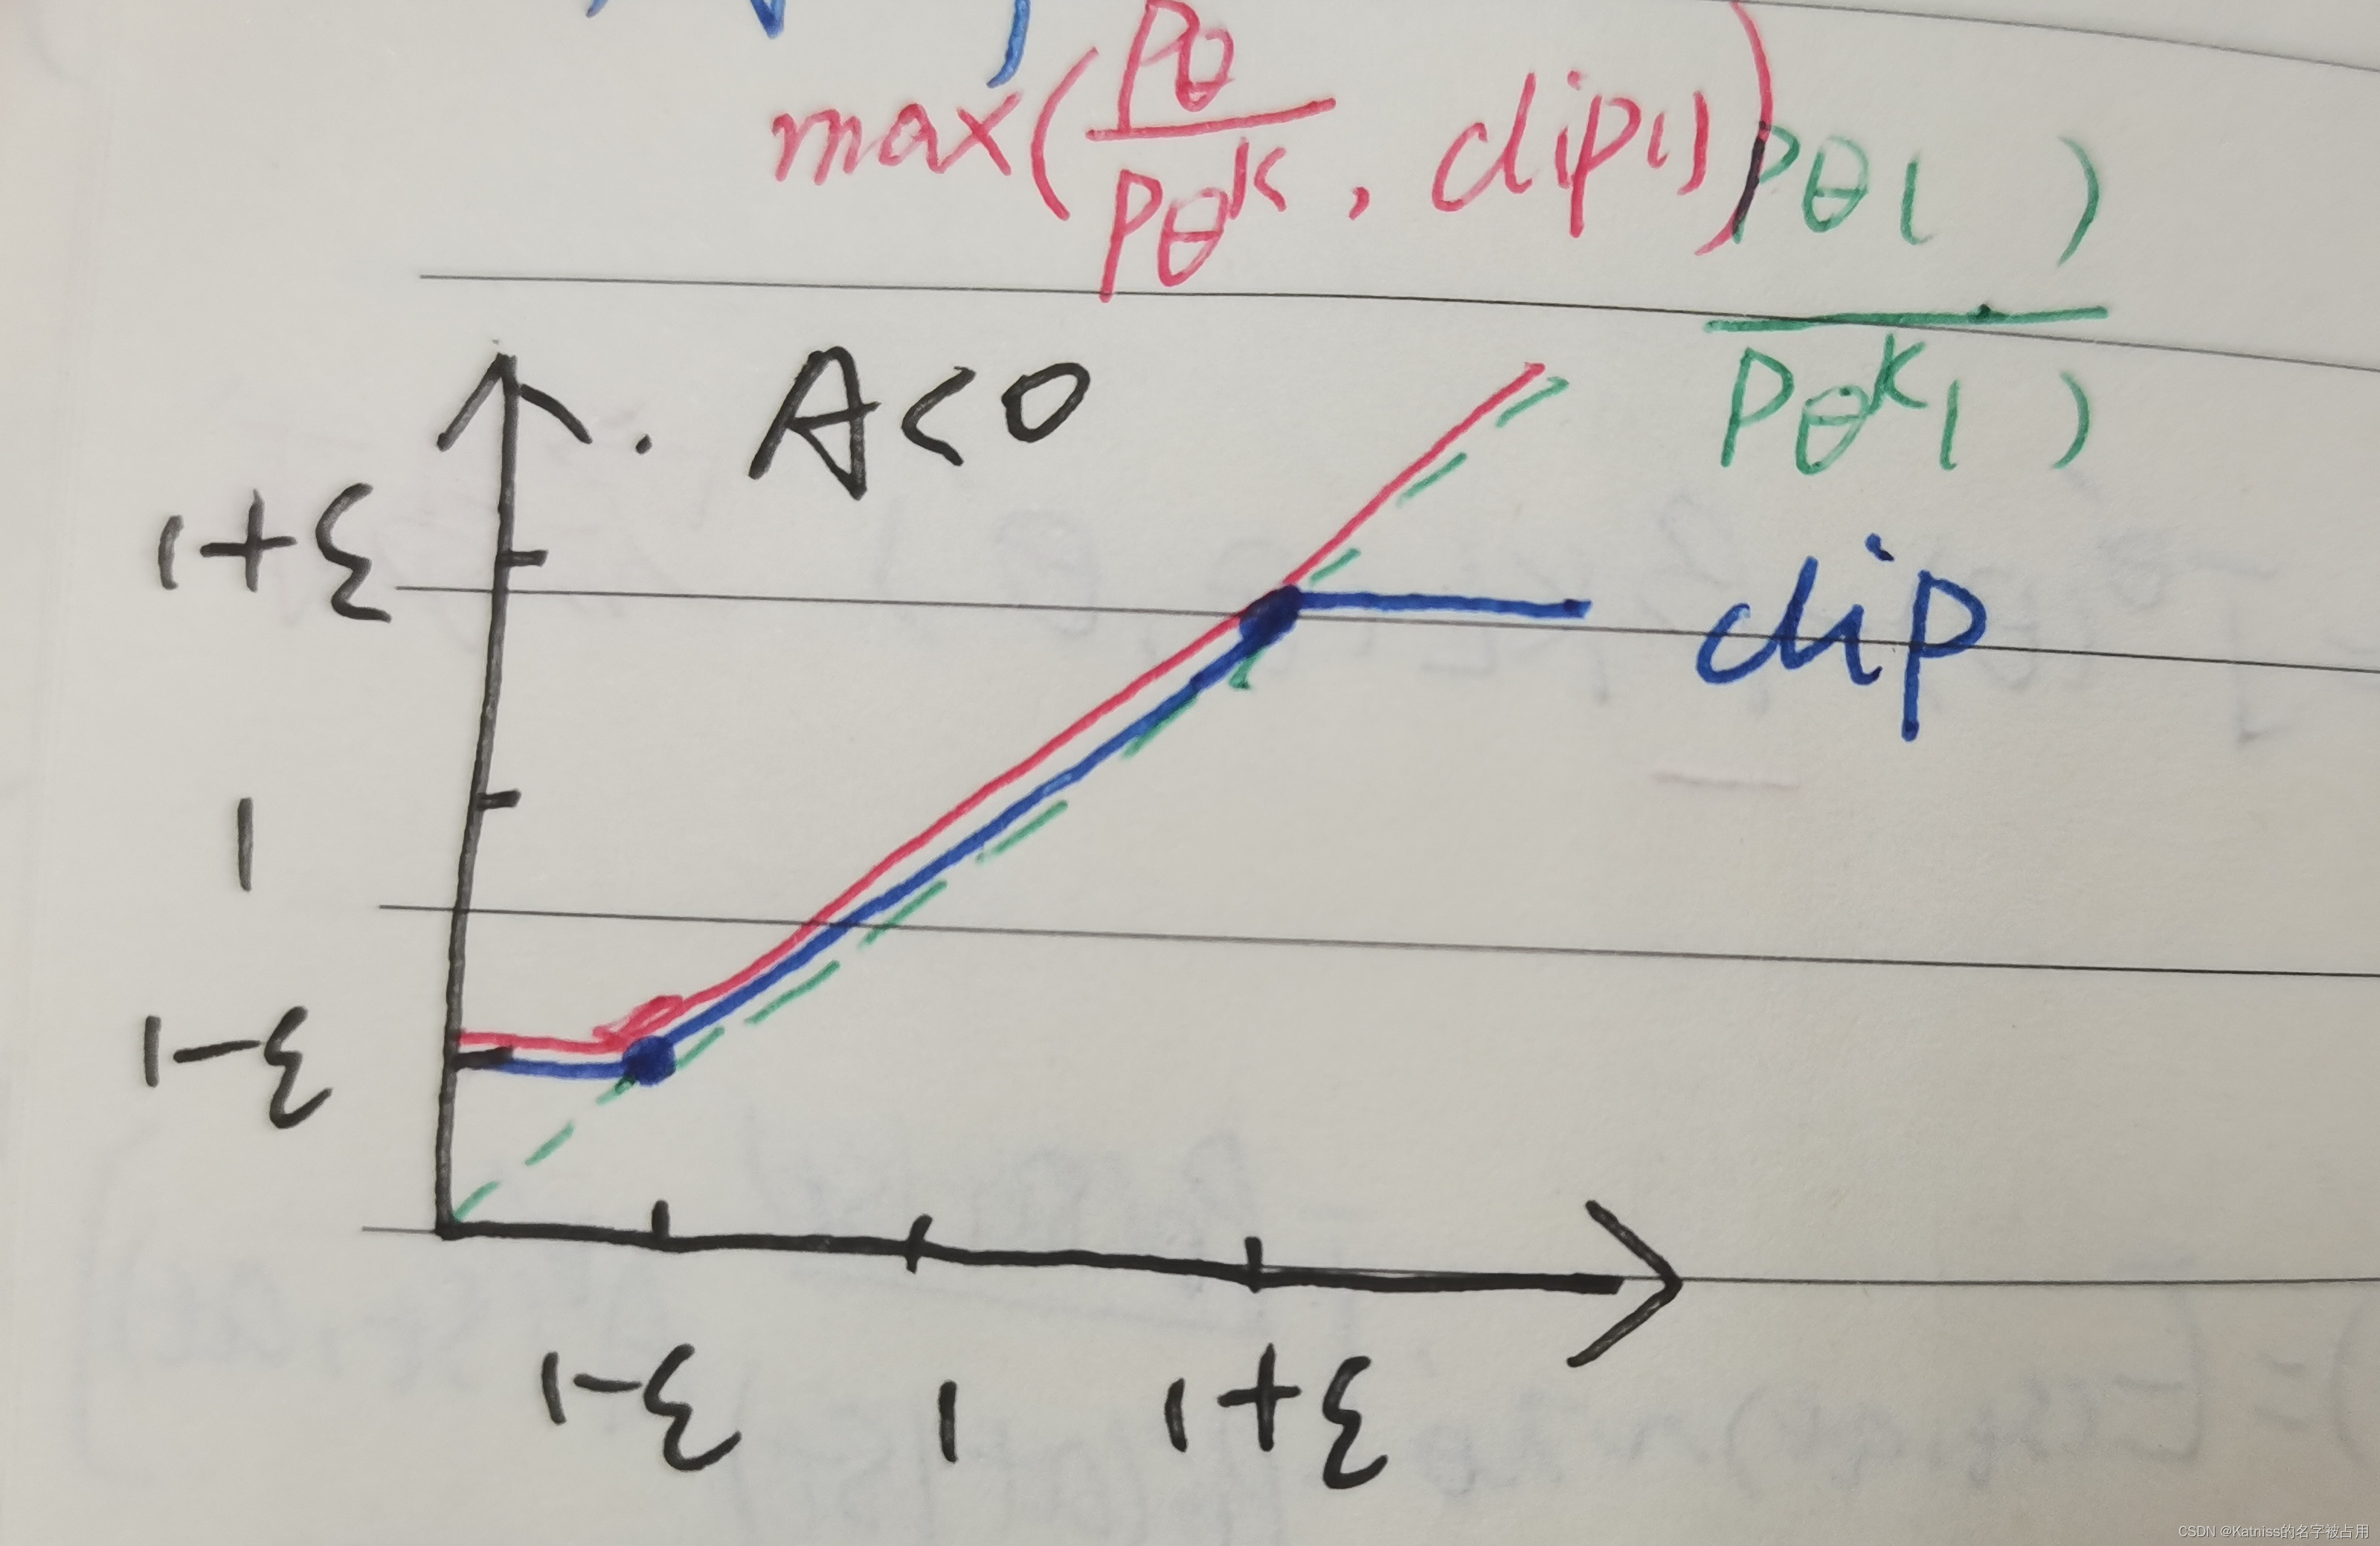 max(Pθ/Pθ^K, clip())
Pθ( )
Pθ^K( )
A<0
1+ε
clip
1
1-ε
1-ε 1 1+ε
CSDN @Katniss的名字被占用